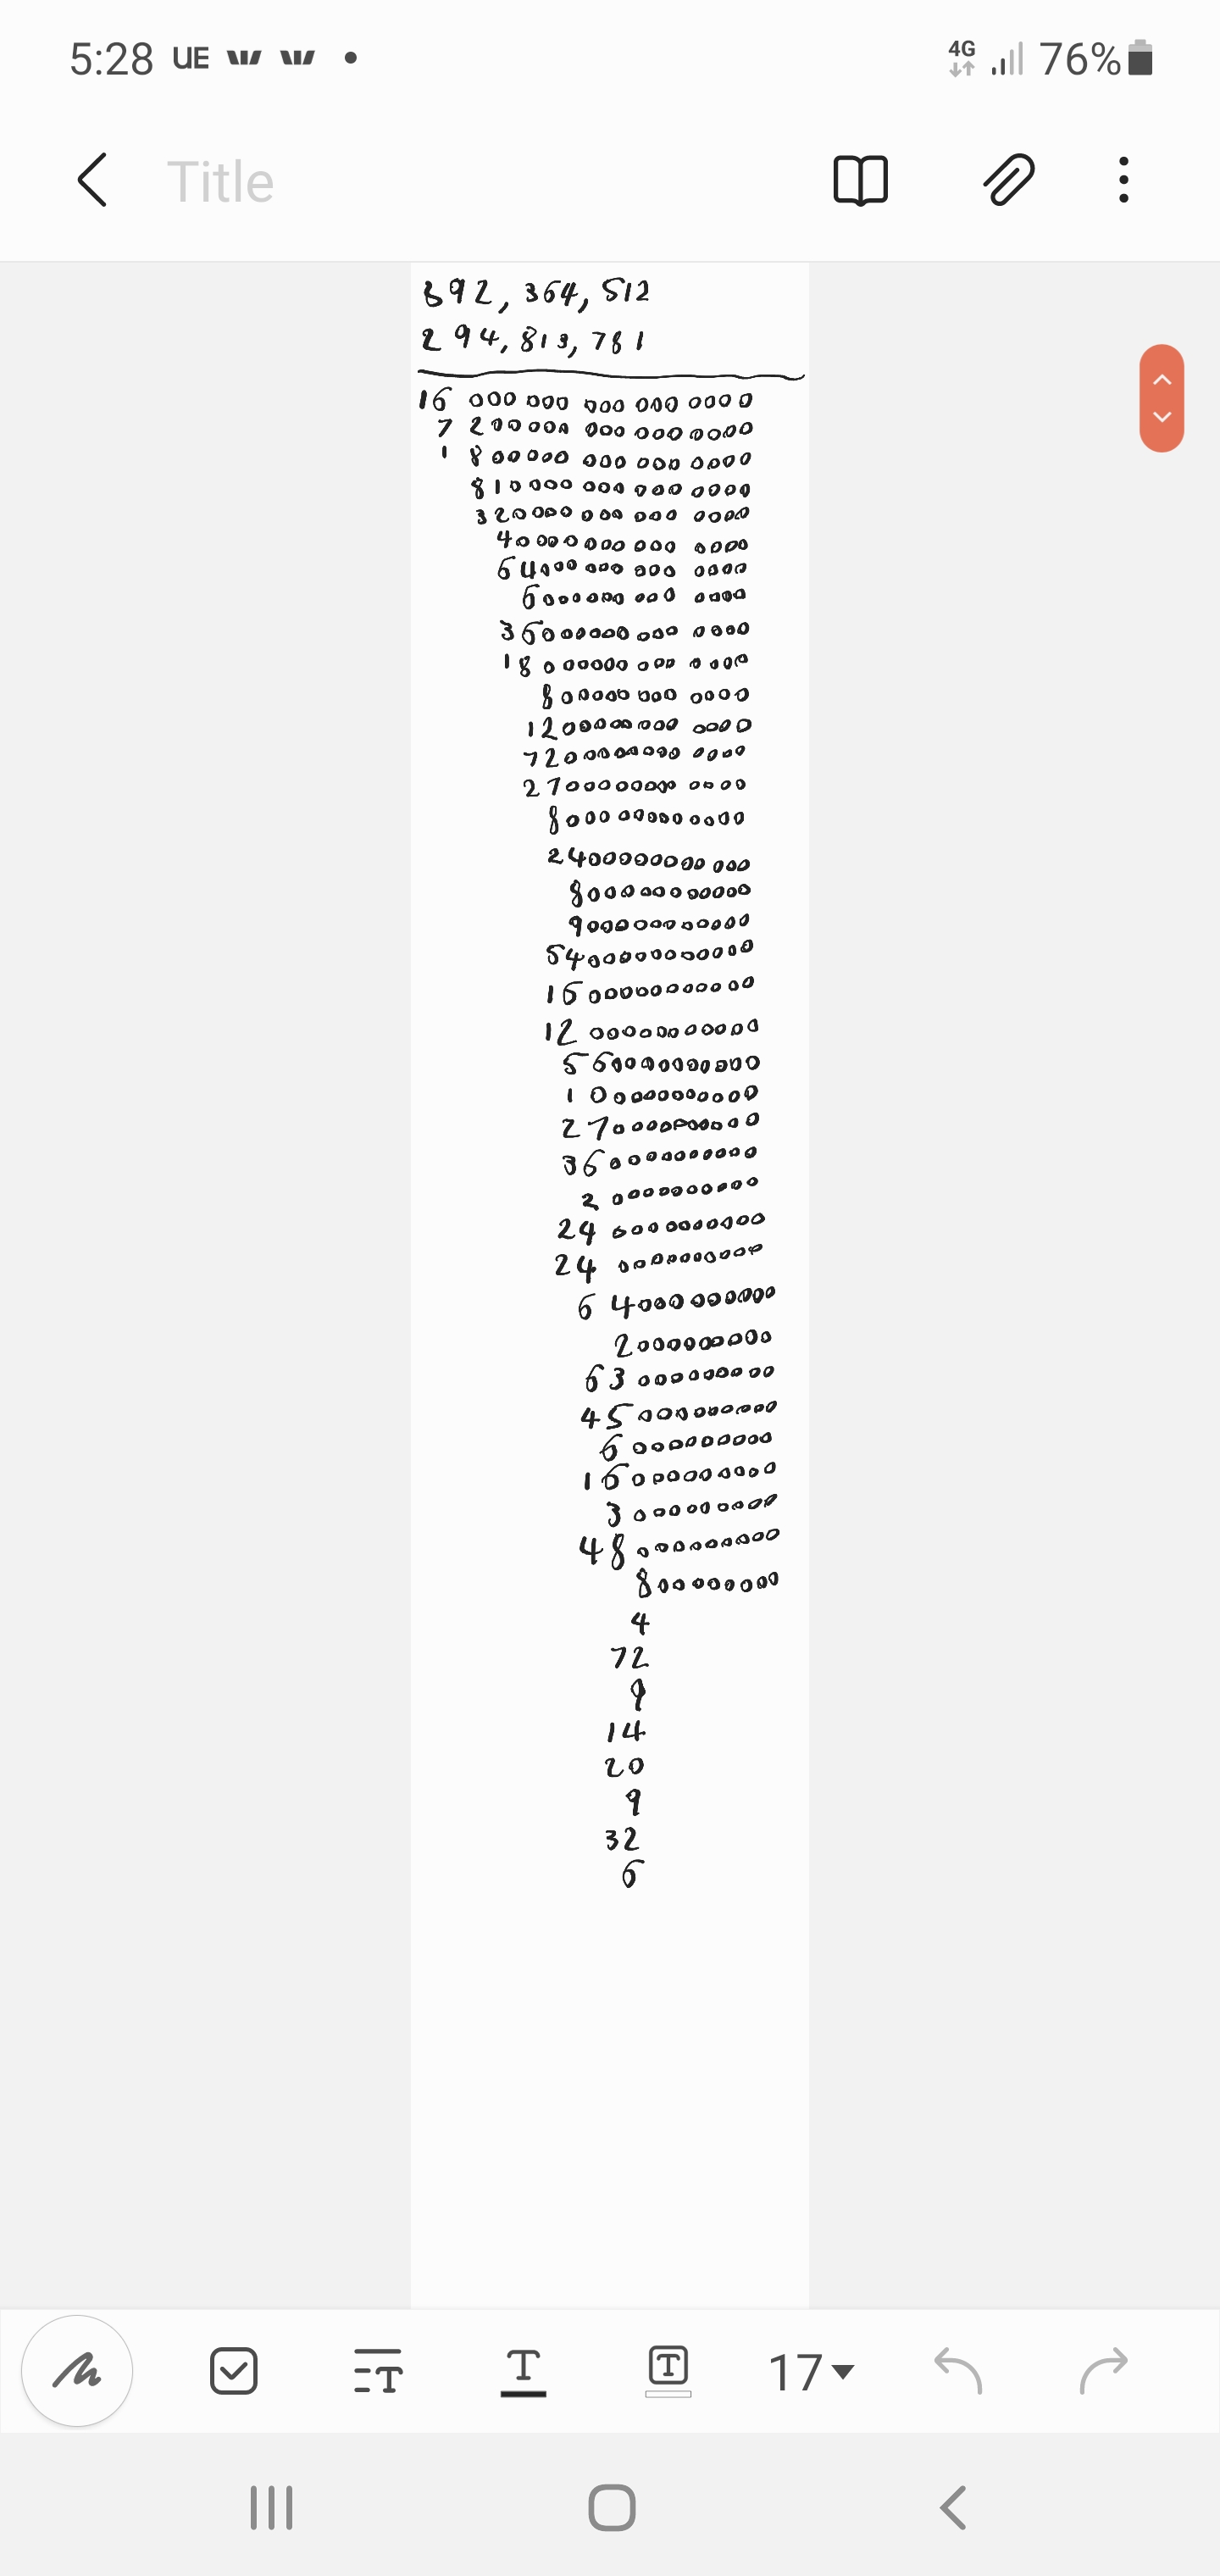 5:28 UE 4G 76%
Title
892, 364, 512
294, 813, 781
16 000 000 000 000 0000
7 200000 000 000 0000
1 800000 000 000 0000
810000 000 000 0000
320000 000 000 0000
40000 000 000 0000
64000 000 000 0000
6000000 000 0000
36000000 000 0000
18 000000 000 0000
8000000 000 0000
12000000000 0000
72000000000 0000
27000000000 0000
8000 000000000
2400000000 000
80000000000
90000000000
540000000000
16 0000000000
12 0000000000
56000000000
1 0000000000
27000000000
36000000000
2 000000000
24 000000000
24 000000000
6 4000 00000
200000000
63 00000000
45 00000000
6 00000000
16 00000000
3 00000000
48 00000000
80000000
4
72
9
14
20
9
32
6
17